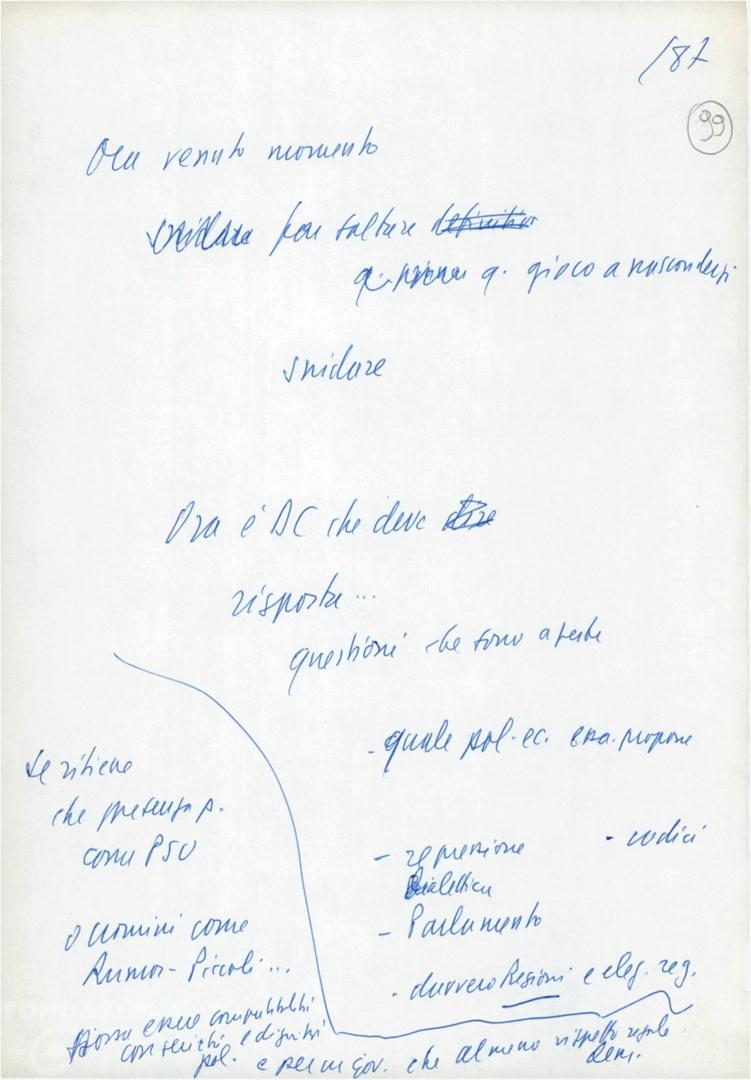 187
99
Ora venuto momento
snidare far saltare definitiv
q. gioco a nascondersi
snidare
Ora è DC che deve dire
risposta...
questioni che sono aperte
- quale pol. ec. essa propone
se ritiene
che presenza p.
come PSU
- repressione
- codici
Dialettica
- Parlamento
o uomini come
Rumor - Piccoli...
- davvero Regioni e eleg. reg.
possa essere compatibili
con serietà e dignità
pol. e per un gov. che almeno rispetto regole
dem.